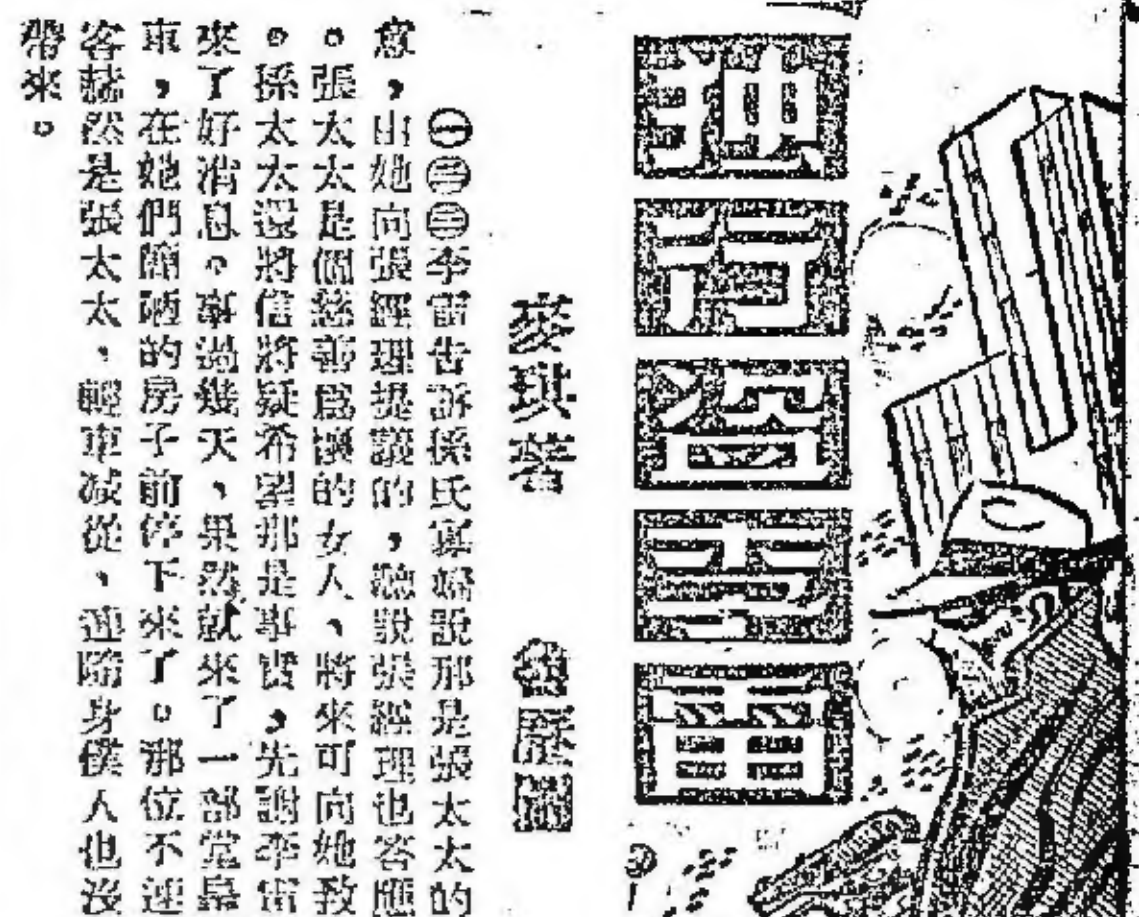 独行盗李雷
麥琪著
㊀㊂㊂李雷告訴孫氏寡婦說那是張太太的
意，由她向張經理提議的，聽說張經理也答應
。張太太是個慈善爲懷的女人、將來可向她致
。孫太太還將信將疑希望那是事實，先謝李雷
來了好消息。事過幾天、果然就來了一部堂皇
車，在她們簡陋的房子前停下來了。那位不速
客赫然是張太太、輕車減從、連隨身僕人也沒
帶來。